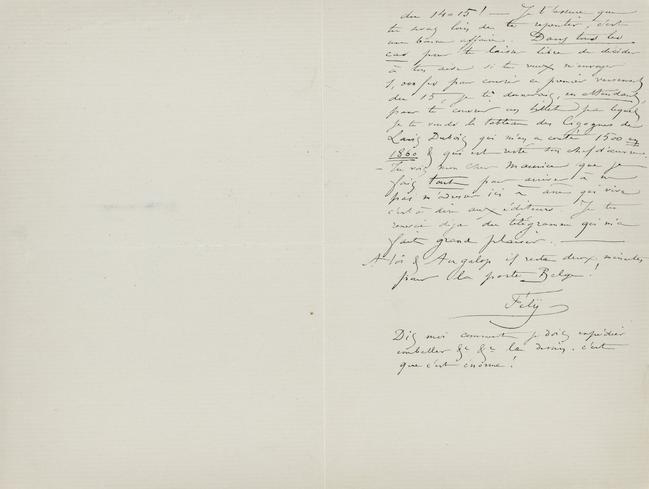 du 14-15! — Je t'assure que
tu seras loin de te repentir, c'est
une bonne affaire. Dans tous les
cas pour te laisser libre de décider
à ton aise si tu veux m'envoyer
par courrier ce premier versement
du 15, je te donnerais, en attendant,
pour te couvrir un billet par lequel
je te vends le tableau des Cigognes de
Louis Dubois qui m'a coûté 1500 en
1860 & qui est resté son chef d'œuvre.
— Tu vois mon cher Maurice que je
fais tout pour arriver à ne
pas m'adresser ici à âme qui vive
c'est à dire aux éditeurs. Je te
remercie déjà du télégramme qui m'a
fait grand plaisir. —
A toi & Au galop il reste deux minutes
pour la poste Belge!
Fély
Dis moi comment je dois expédier
emballer &c &c le dessin. c'est
que c'est énorme!